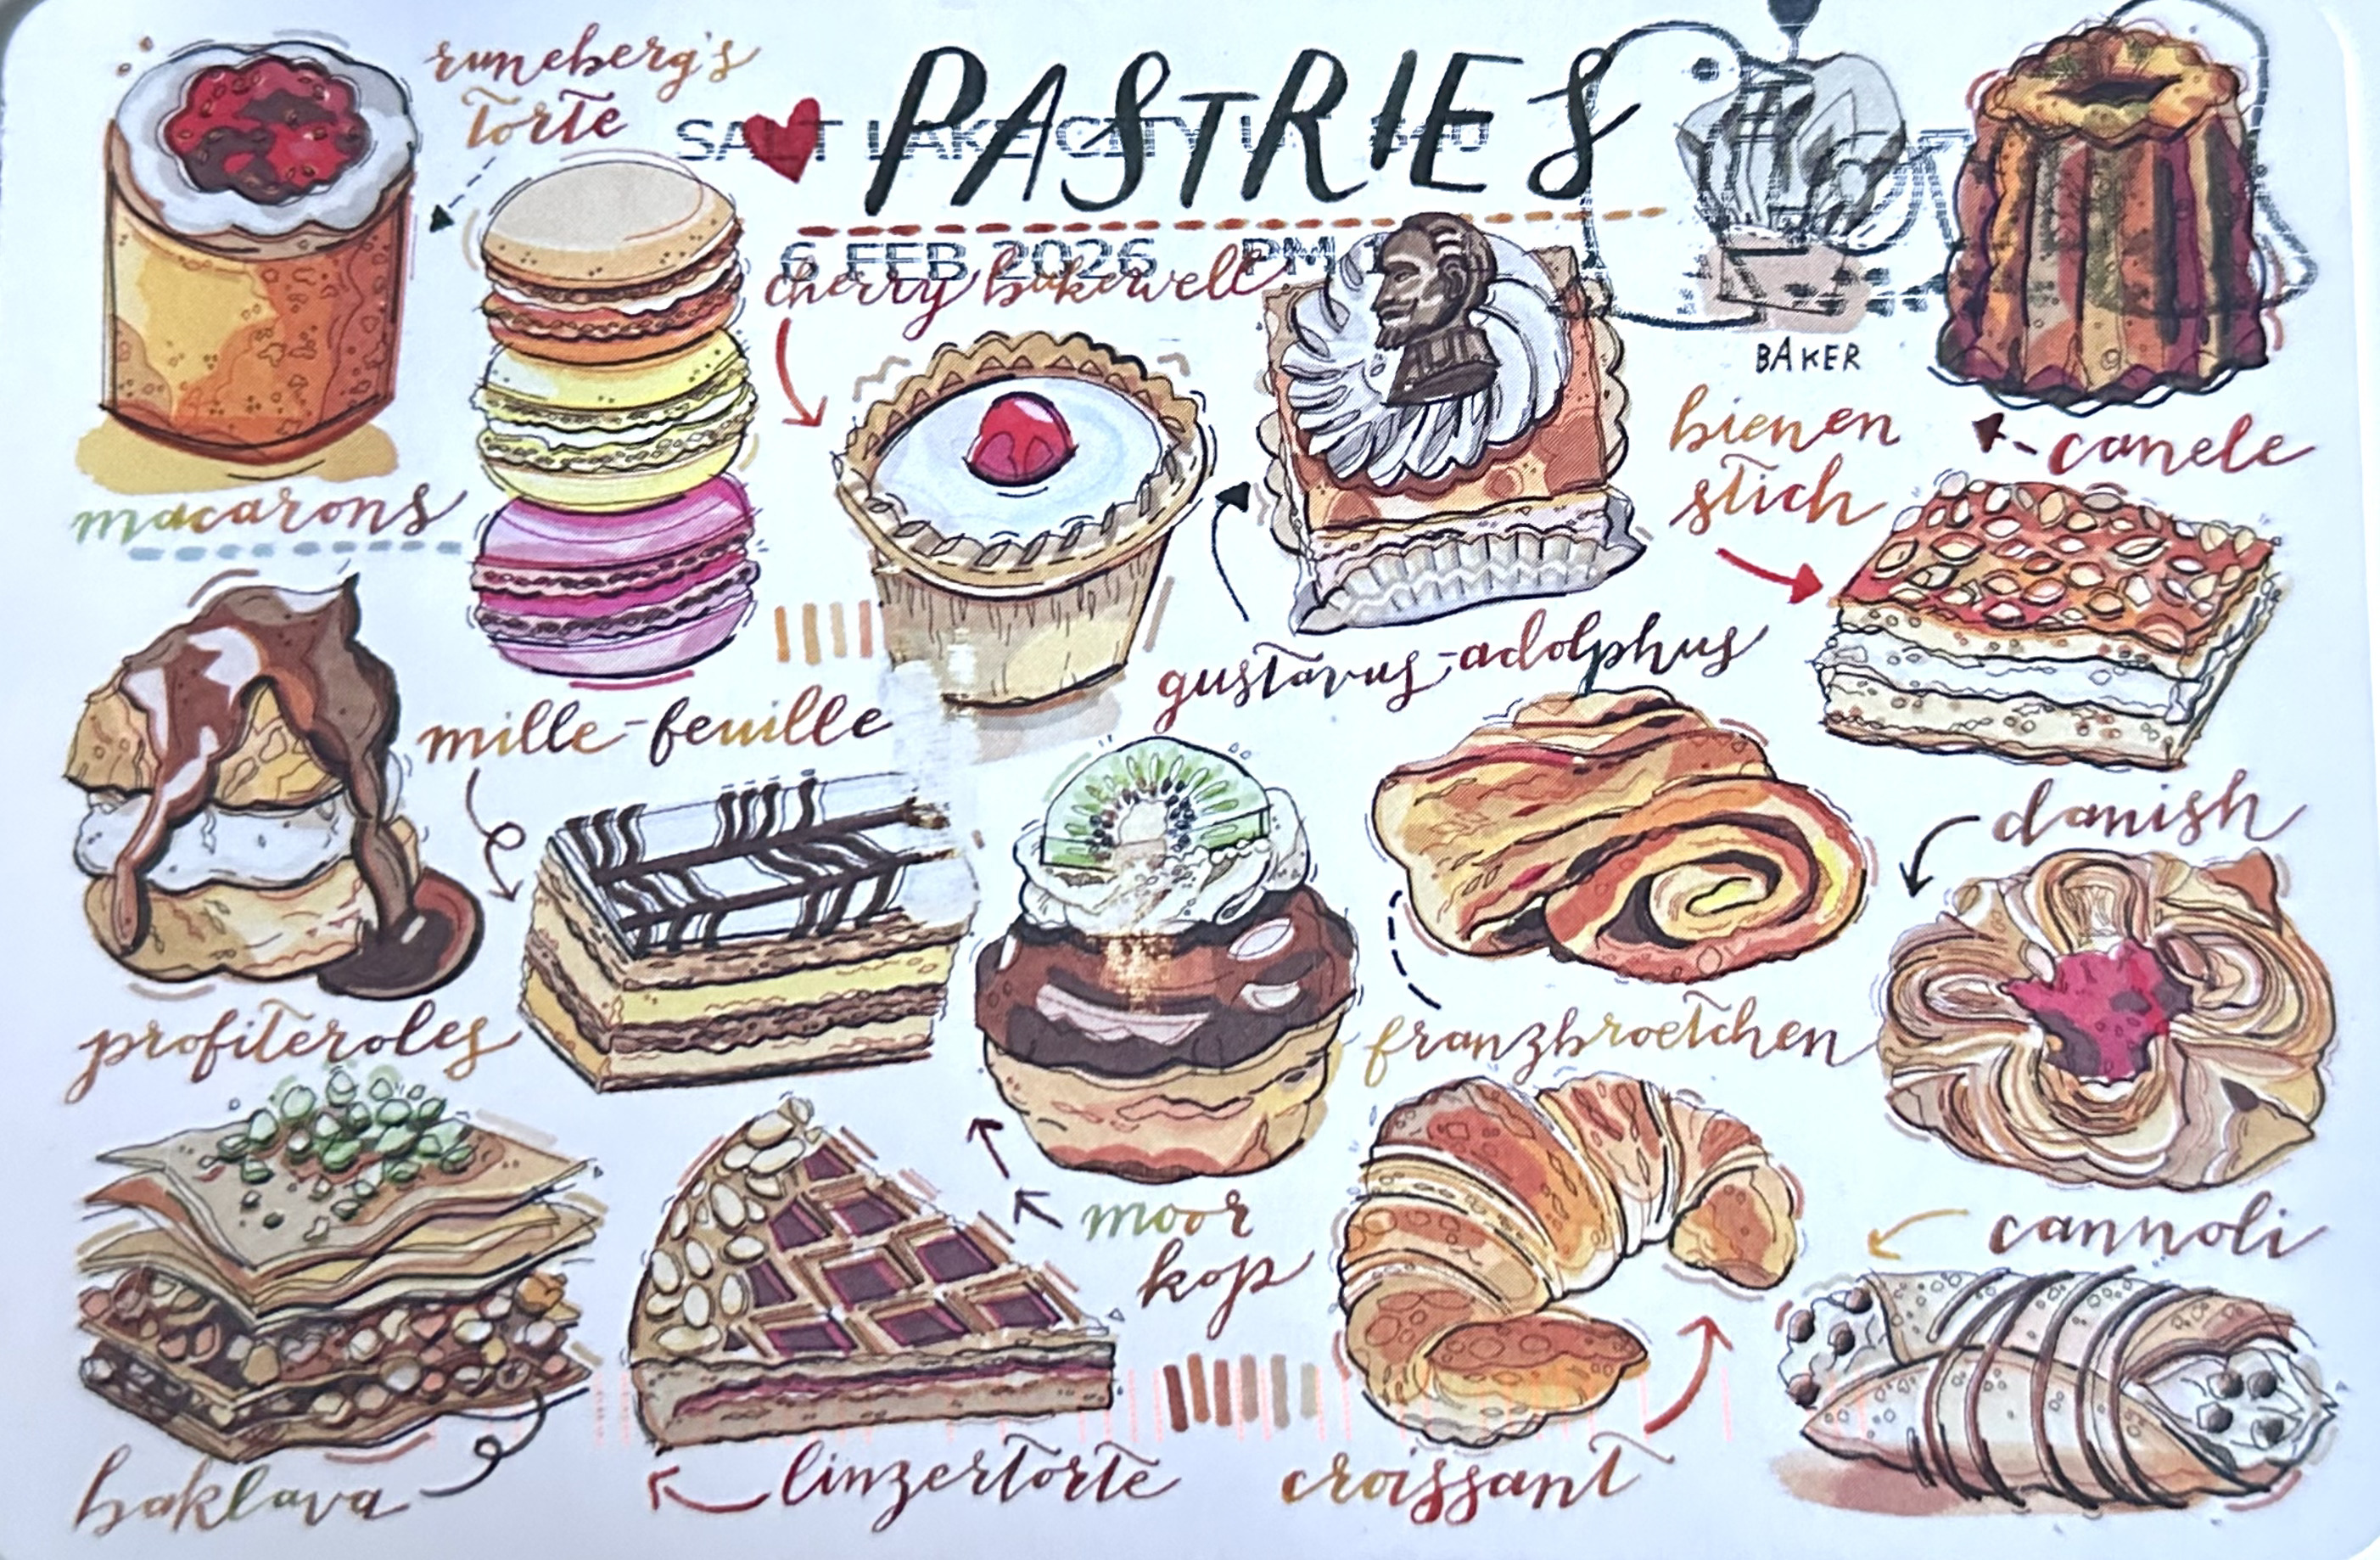 runeberg's
torte
PASTRIES
SALT LAKE CITY UT 840
6 FEB 2026 PM 1
cherry bakewell
BAKER
bienen
stich
canele
macarons
gustavus-adolphus
mille-feuille
danish
profiteroles
franzbroetchen
moor
kop
cannoli
baklava
linzertorte
croissant